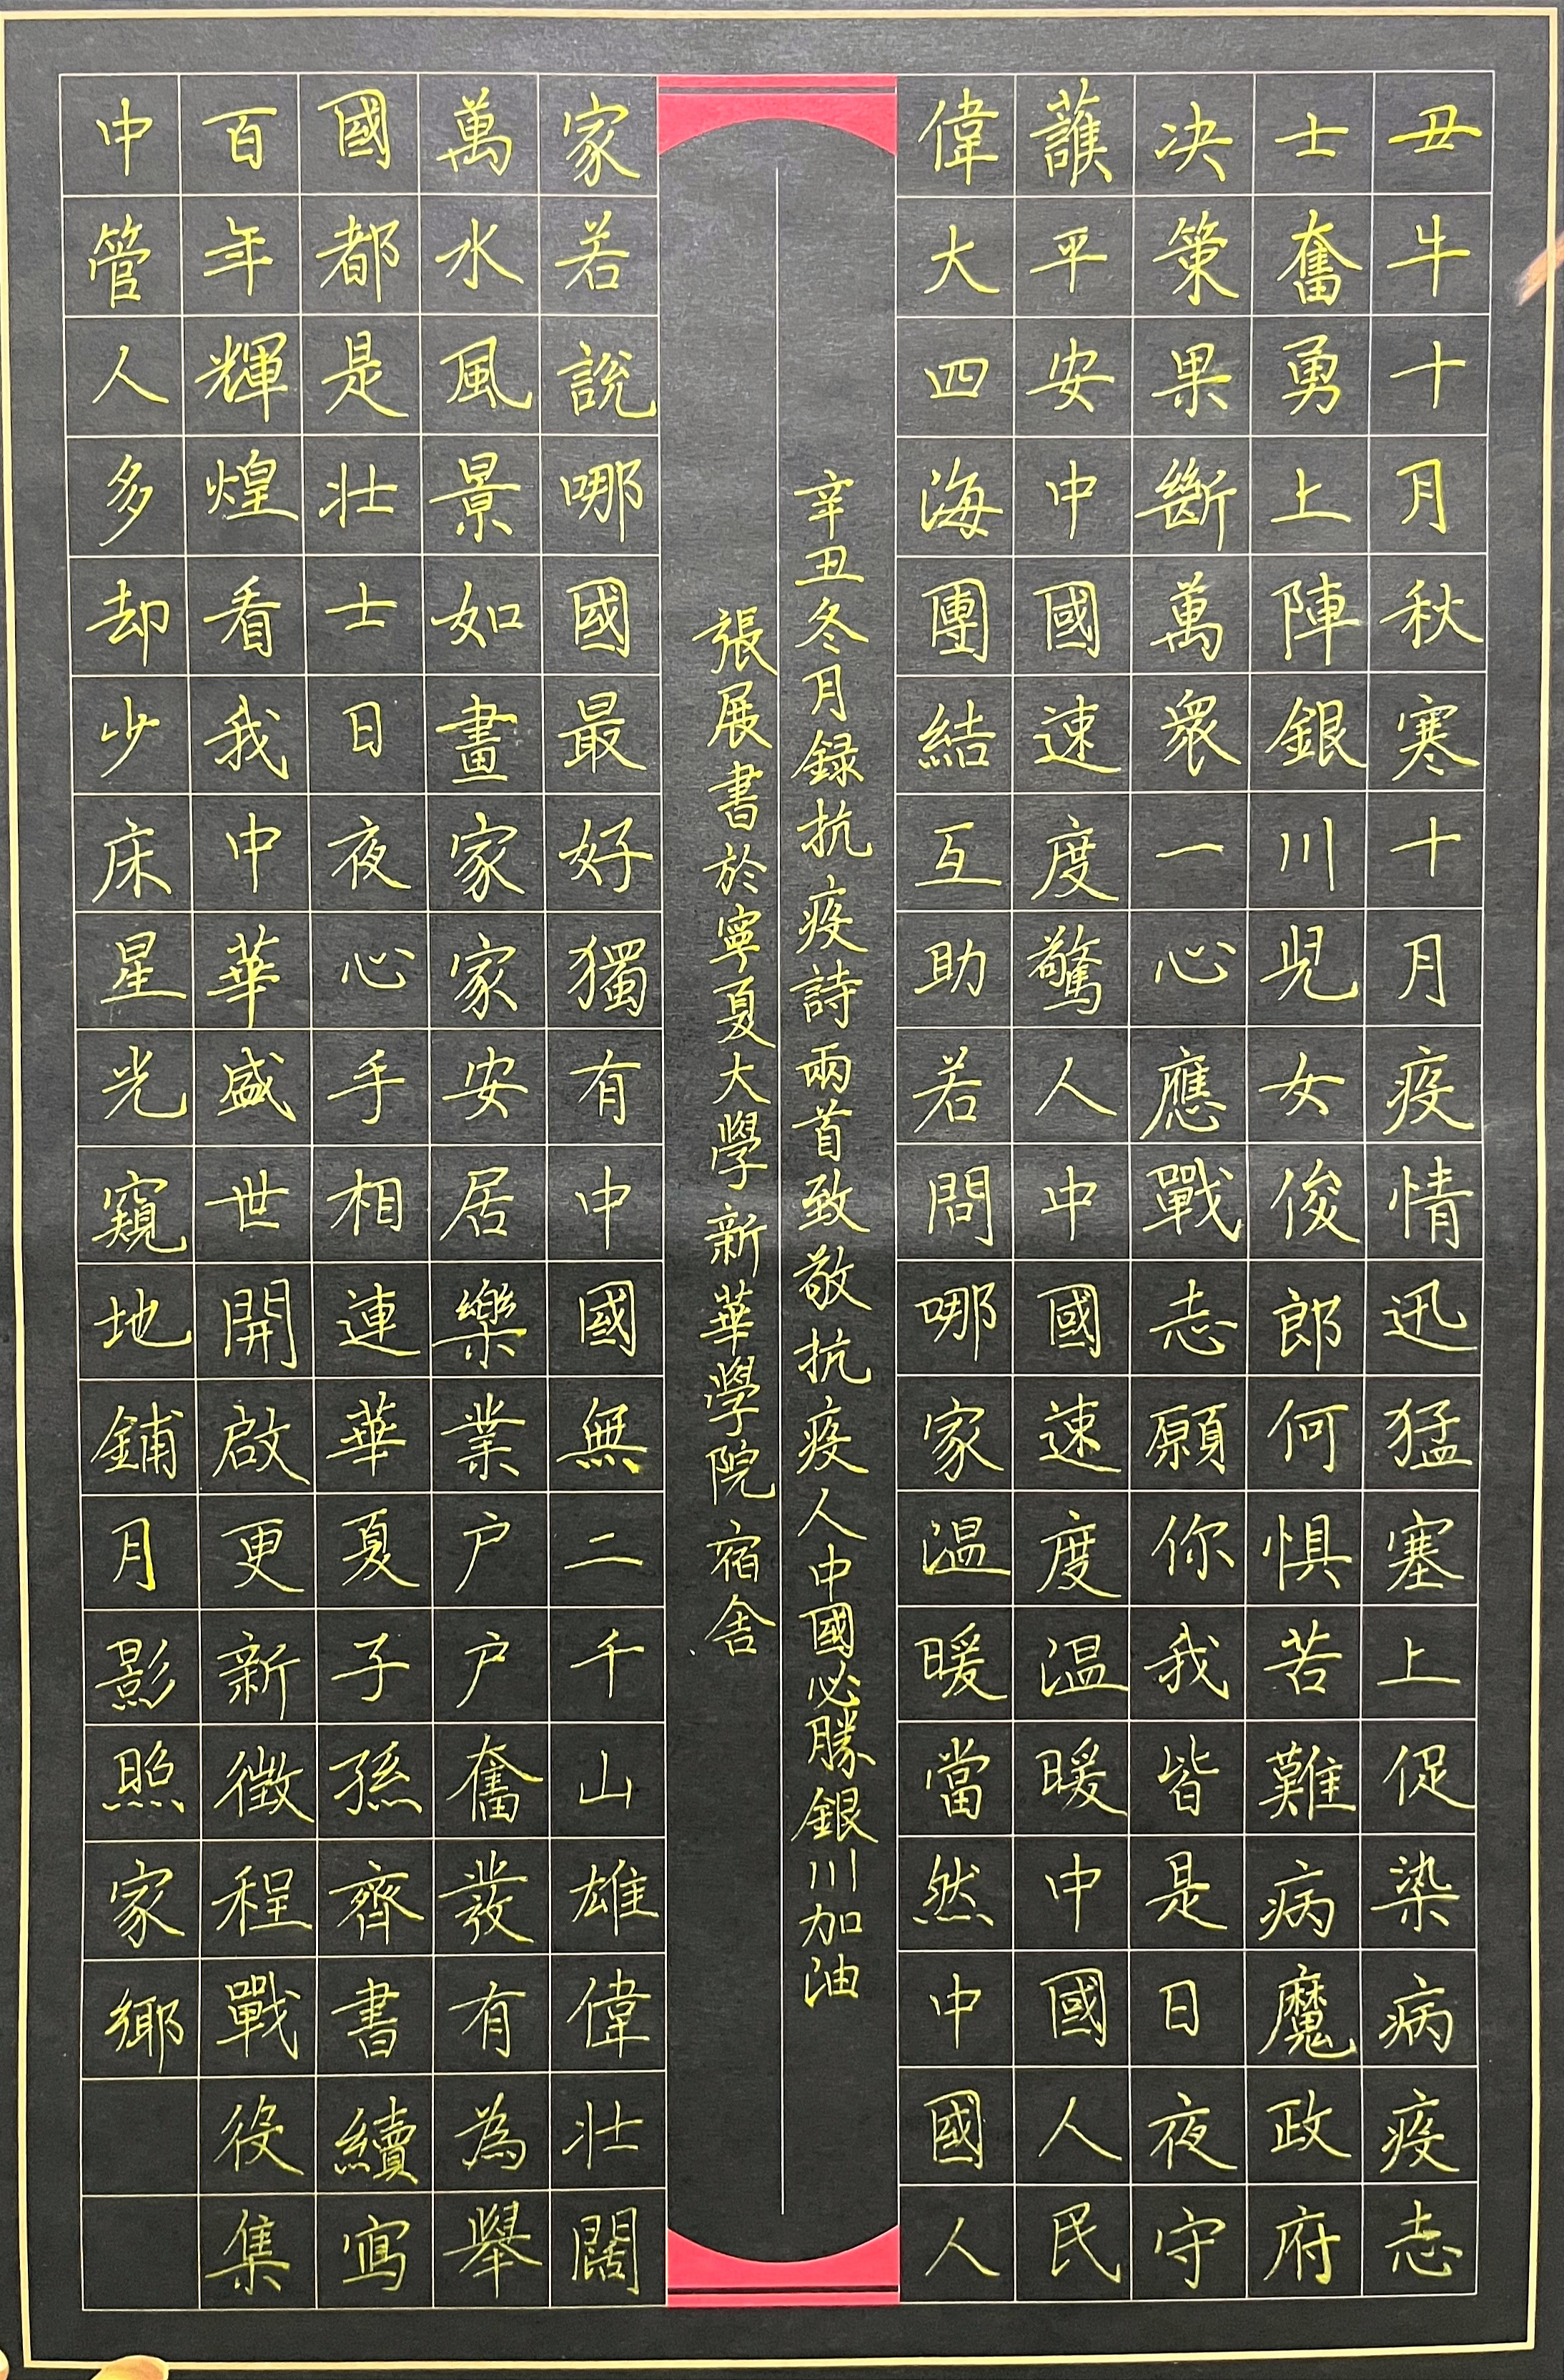 丑牛十月秋寒十月疫情迅猛塞上促染病疫志
士奮勇上陣銀川兒女俊郎何懼苦難病魔政府
决策果斷萬衆一心應戰志願你我皆是日夜守
護平安中國速度驚人中國速度温暖中國人民
偉大四海團結互助若問哪家温暖當然中國人
辛丑冬月録抗疫詩兩首致敬抗疫人中國必勝銀川加油
張展書於寧夏大學新華學院宿舍
家若說哪國最好獨有中國無二千山雄偉壯闊
萬水風景如畫家家安居樂業户户奮發有為舉
國都是壯士日夜心手相連華夏子孫齊書續寫
百年輝煌看我中華盛世開啟更新徵程戰役集
中管人多却少床星光窺地鋪月影照家鄉